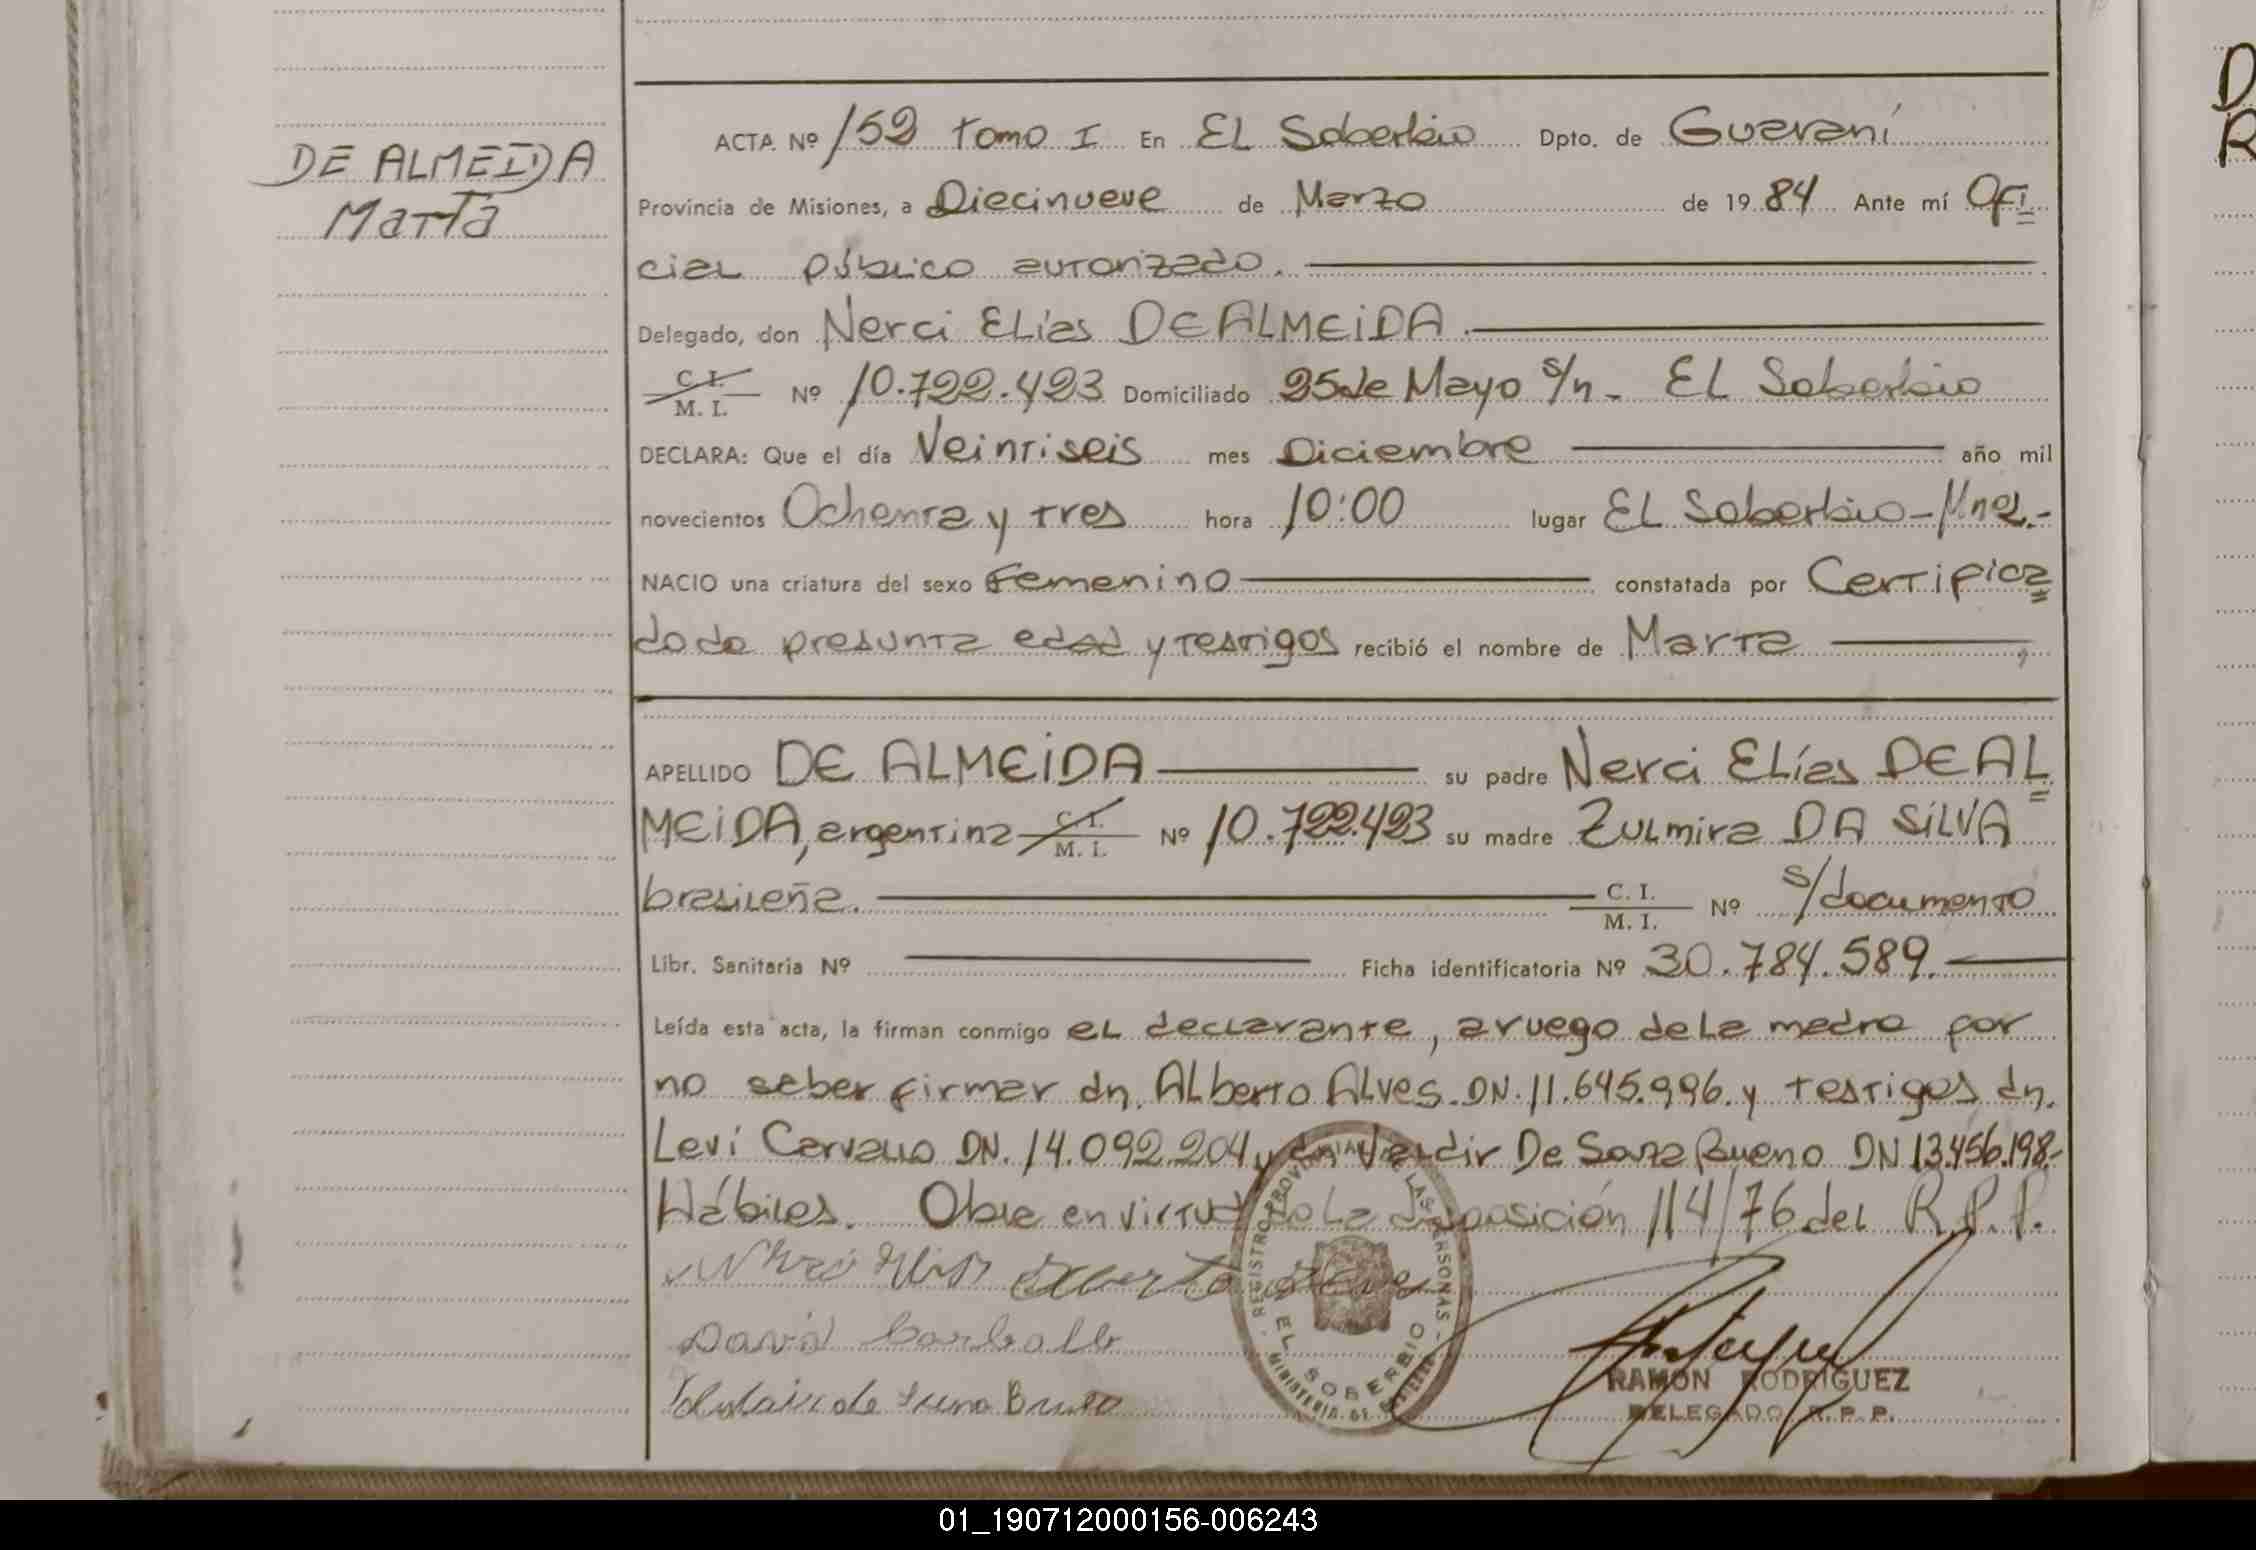 DE ALMEIDA
Marta
ACTA Nº 152 Tomo I En EL Soberbio Dpto. de Guaraní
Provincia de Misiones, a Diecinueve de Marzo de 1984 Ante mí Ofi
cial público autorizado.
Delegado, don Nerci Elías DE ALMEIDA.
C. I. / M. I. Nº 10.722.423 Domiciliado 25 de Mayo s/n - EL Soberbio
DECLARA: Que el día Veintiseis mes Diciembre año mil
novecientos Ochenta y tres hora 10:00 lugar EL Soberbio - Mnes.-
NACIO una criatura del sexo Femenino constatada por Certifica
do de presunta edad y testigos recibió el nombre de Marta
APELLIDO DE ALMEIDA su padre Nerci Elías DE AL
MEIDA, argentina C. I. / M. I. Nº 10.722.423 su madre Zulmira DA SILVA
brasileña. C. I. / M. I. Nº s/documento
Libr. Sanitaria Nº Ficha identificatoria Nº 30.784.589.
Leída esta acta, la firman conmigo el declarante, a ruego de la madre por
no saber firmar dn. Alberto Alves. DN. 11.645.996. y testigos dn.
Leví Carvallo DN. 14.092.204 y dn Valdir De Souza Bueno DN 13.456.198.-
Hábiles. Obre en virtud de la disposición 114/76 del R.P.P.
David Carballo
de Bueno
REGISTRO PROVINCIAL DE LAS PERSONAS
EL SOBERBIO
MINISTERIO DE GOBIERNO
RAMON RODRIGUEZ
DELEGADO R. P. P.
D
R
01_190712000156-006243